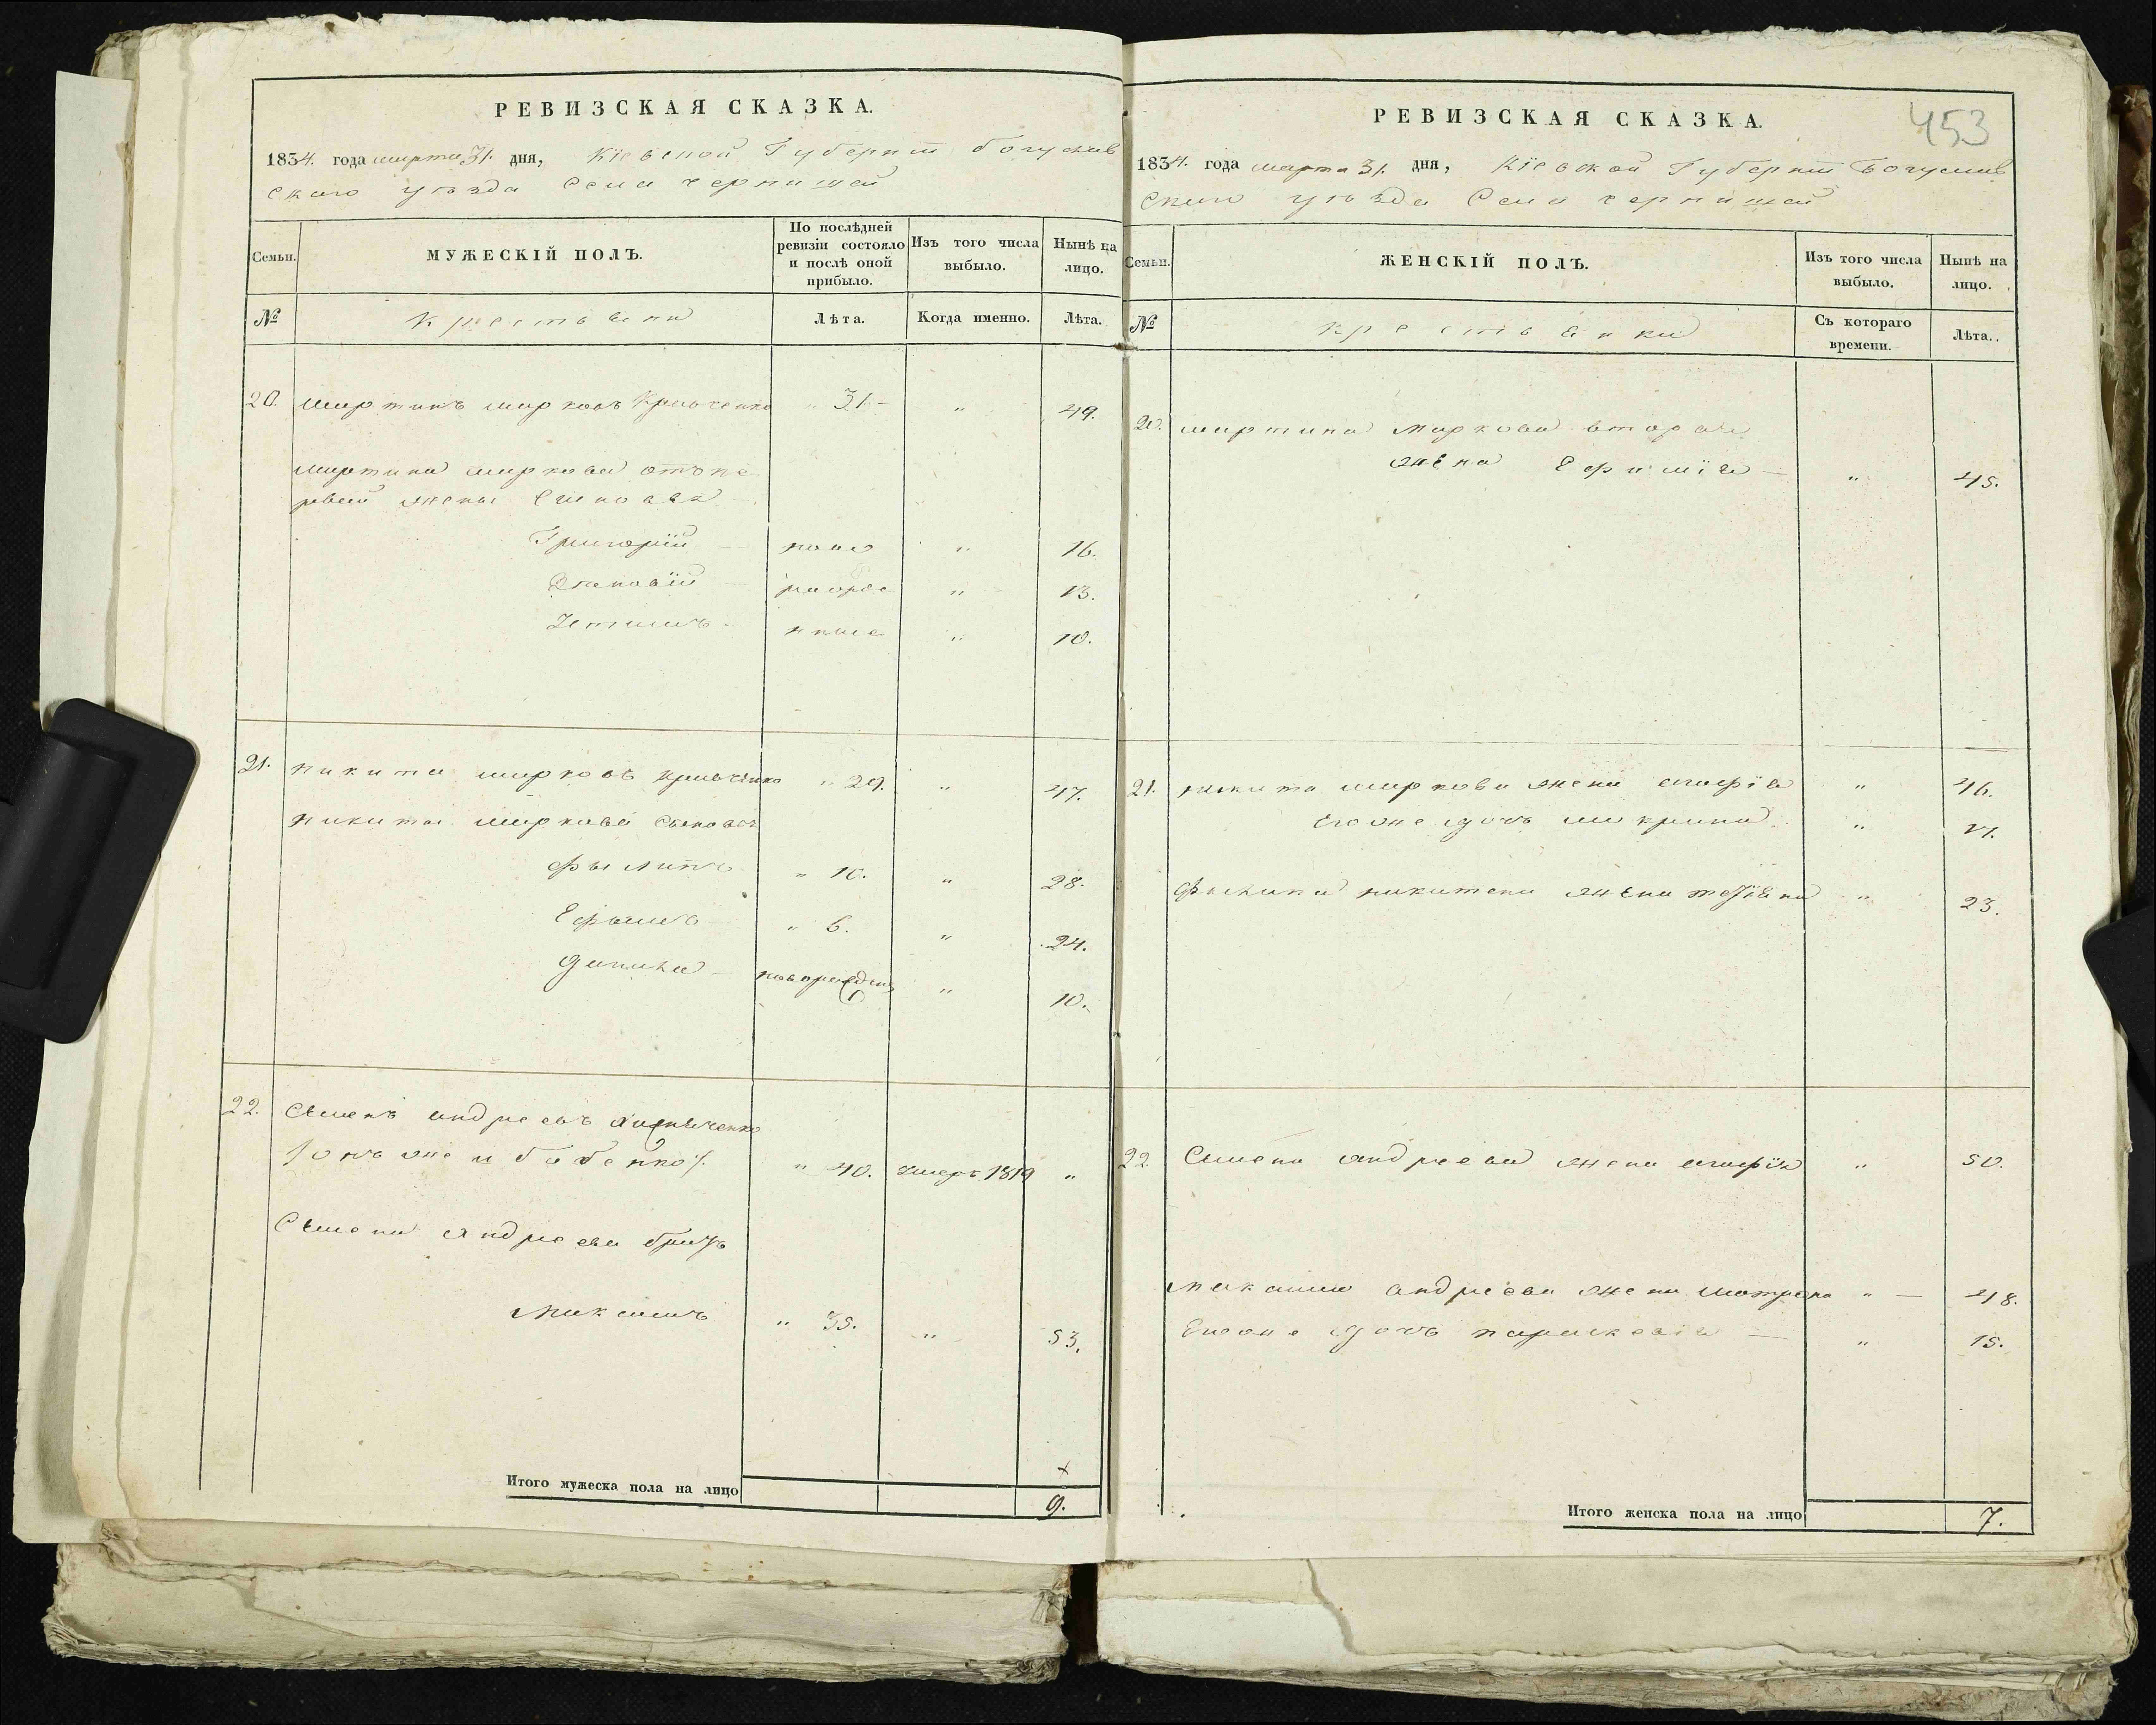 РЕВИЗСКАЯ СКАЗКА.
1834. года марта 31. дня, Кіевской Губерніи Богуслав
скаго уѣзда Села Чернишей
Семьи.
МУЖЕСКІЙ ПОЛЪ.
По послѣдней ревизіи состояло и послѣ оной прибыло.
Изъ того числа выбыло.
Нынѣ на лицо.
№
Крестьяни
Лѣта.
Когда именно.
Лѣта.
20. Мартинъ Марковъ Кравченко " 31. " 49.
Мартина Маркова отъ пе
рвей жены Сыновья
Григорій ново " 16.
рожде " 13.
ныие " 10.
21. Никита Марковъ Кравченко " 29. " 47.
Никиты Маркова Сыновья
Филипъ " 10. " 28.
Ефимъ " 6. " 24.
Данила " 10.
22. Семенъ Андреевъ
онъ же и Бабенко " 40. умеръ 1819 "
Семена Андреева братъ
Максимъ " 35. " 53.
Итого мужеска пола на лицо 9.
453
РЕВИЗСКАЯ СКАЗКА.
1834. года марта 31. дня, Кіевской Губерніи Богуслав
скаго уѣзда Села Чернишей
Семьи.
ЖЕНСКІЙ ПОЛЪ.
Изъ того числа выбыло.
Нынѣ на лицо.
№
Крестьянки
Съ котораго времени.
Лѣта.
20. Мартина Маркова вторая
жена Ефимія " 45.
21. Никиты Маркова жена Агафія " 46.
Его же дочь Макрина " 17.
Филипа Никитена жена Тетіана " 23.
22. Семена Андреева жена Агафія " 50.
Максима Андреева жена Мотрона " 48.
Его же дочь Параскевія " 15.
Итого женска пола на лицо 7.